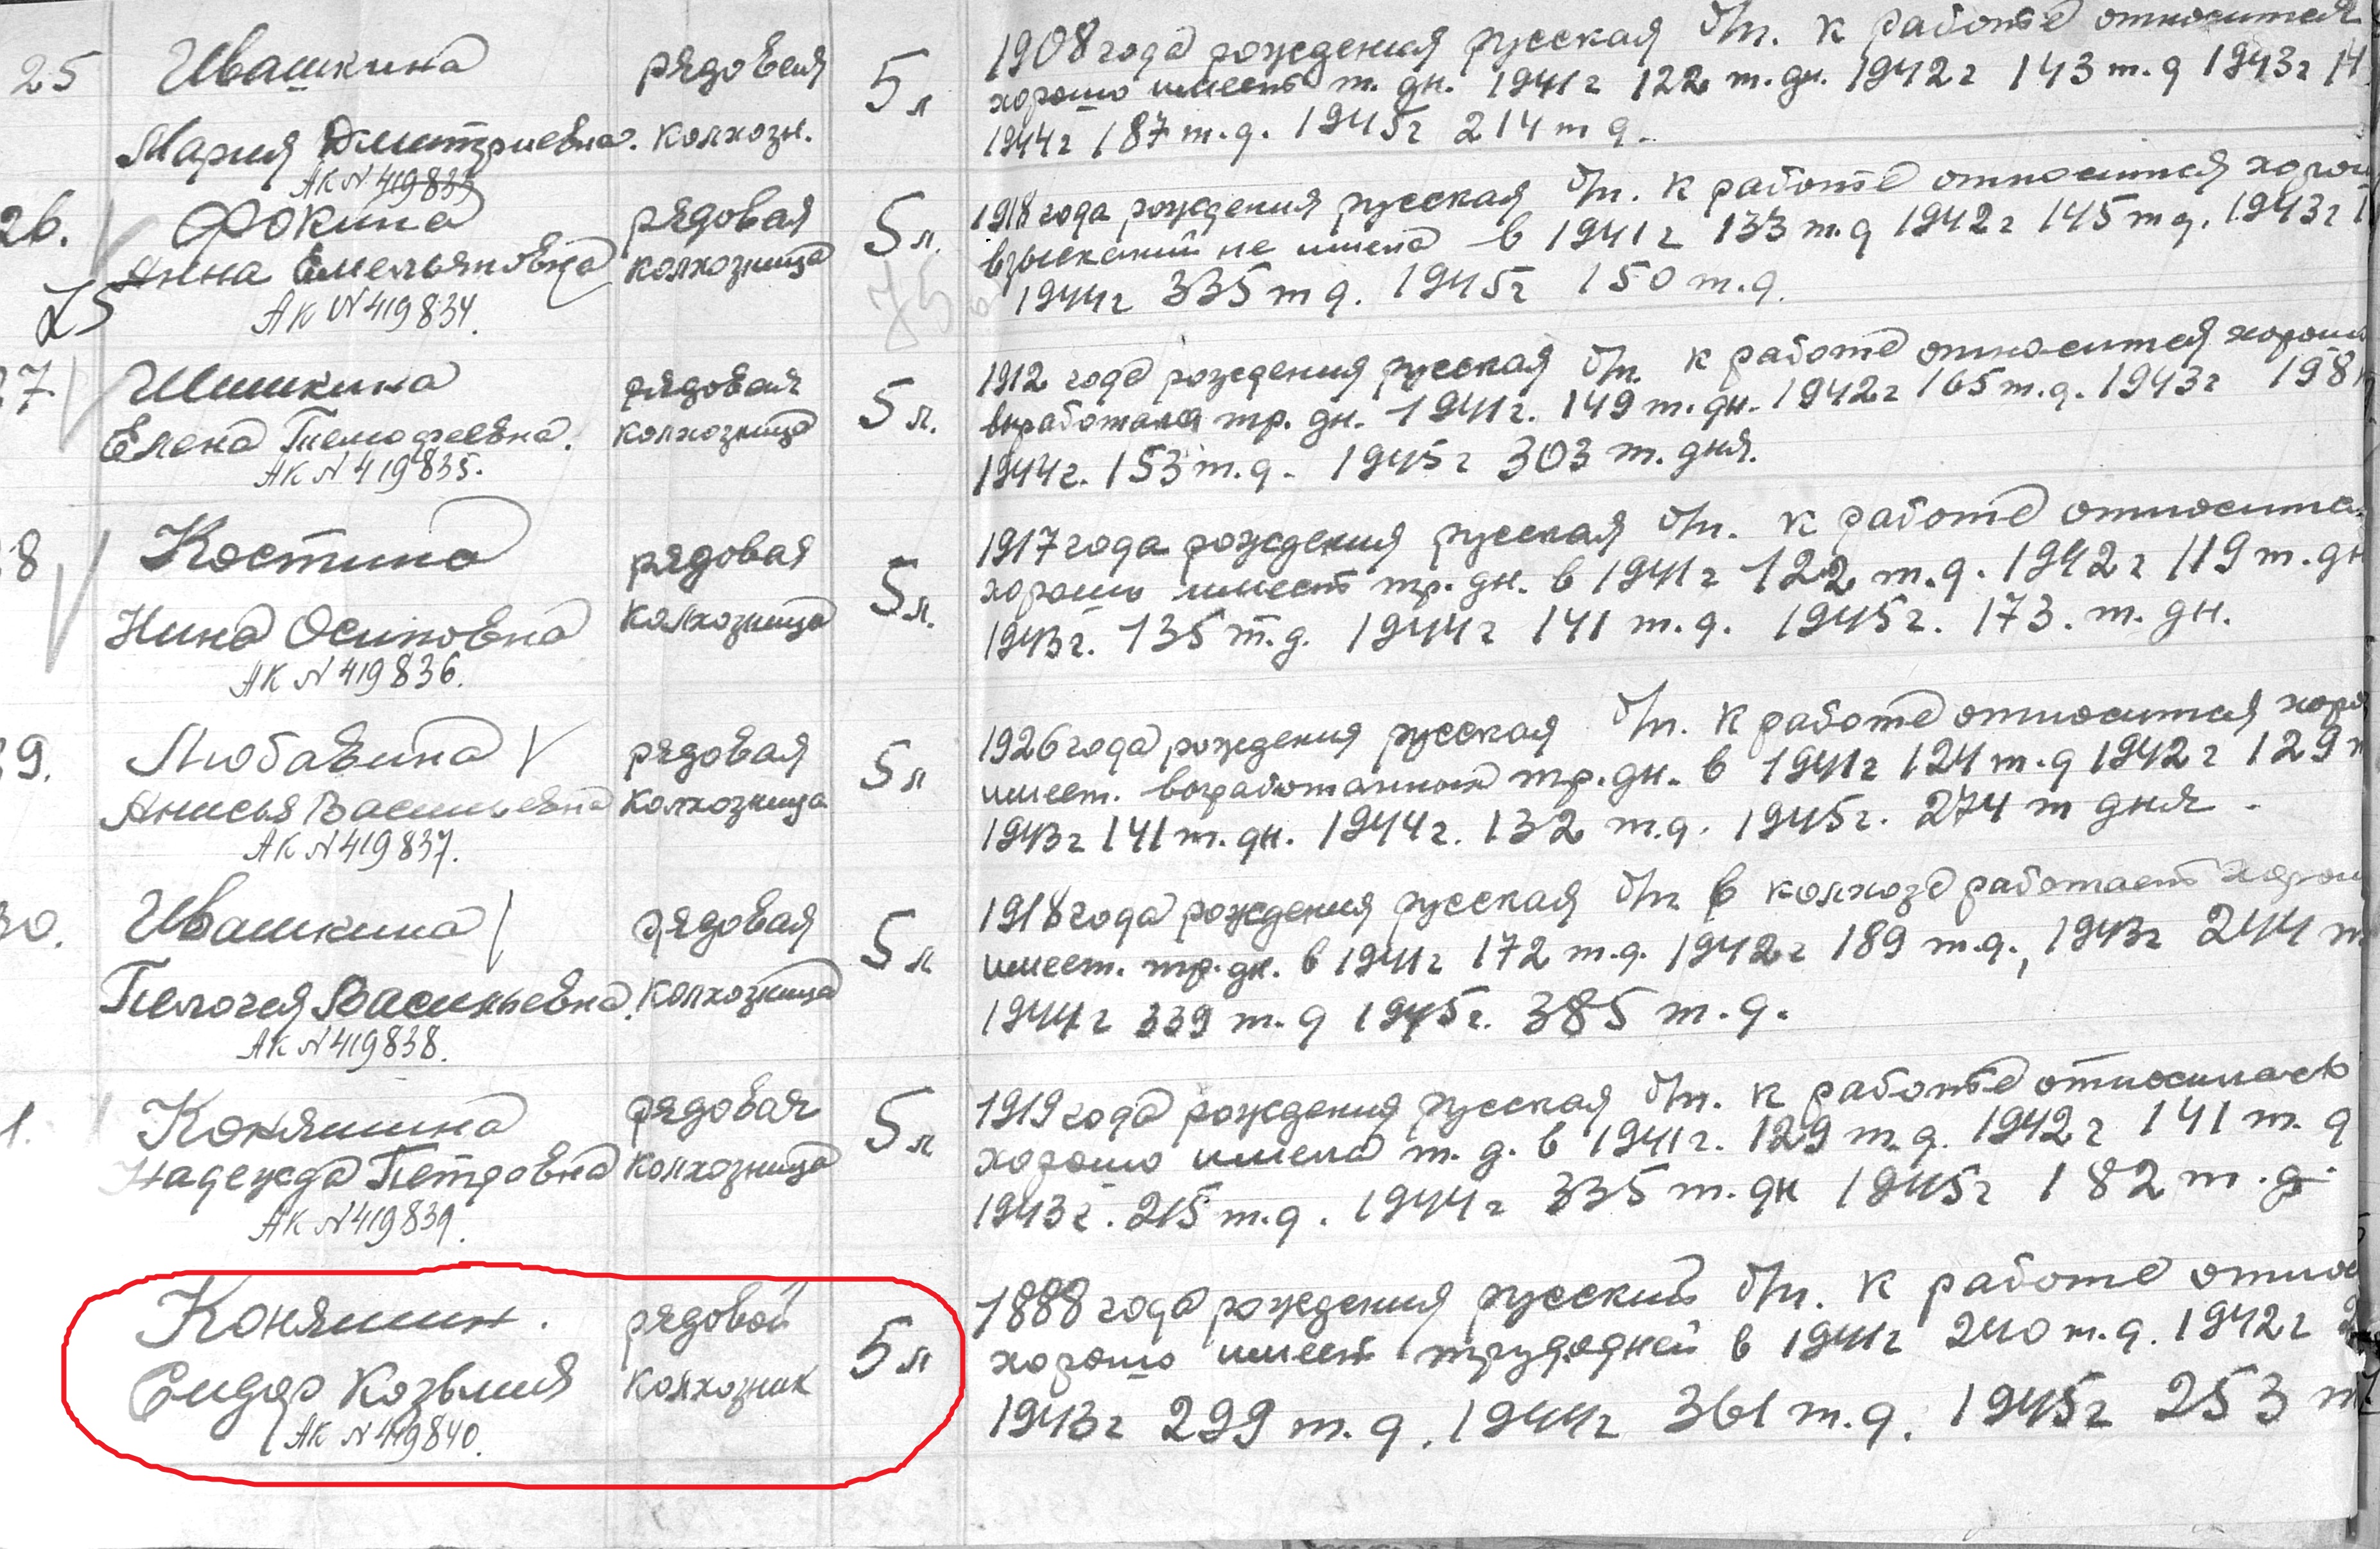 25 Ивашкина рядовая 5 л 1908 года рождения русская б/п. к работе относится
хорошо имеет т. дн. 1941 г 122 т. дн. 1942 г 143 т. д 1943 г 14
Мария Дмитриевна. колхозн. 1944 г 187 т. д. 1945 г 214 т д.
АК N 419833
26. Фокина рядовая 5 л. 1918 года рождения русская б/п. к работе относится хорош
Анна Емельяновна колхозница взысканий не имела в 1941 г 133 т. д 1942 г 145 т д. 1943 г
25 АК N 419834. 1944 г 335 т д. 1945 г 150 т. д.
27 Шишкина рядовая 5 л. 1912 года рождения русская б/п. к работе относится хорошо
Елена Тимофеевна. колхозница выработала тр. дн. 1941 г. 149 т. дн. 1942 г 165 т. д. 1943 г 198
АК N 419835. 1944 г. 153 т. д. 1945 г 303 т. дня.
8 Костина рядовая 5 л. 1917 года рождения русская б/п. к работе относится
хорошо имеет тр. дн. в 1941 г 122 т. д. 1942 г 119 т. дн
Нина Осиповна колхозница 1943 г. 135 т. д. 1944 г 141 т. д. 1945 г. 173. т. дн.
АК N 419836.
9. Любавина рядовая 5 л 1926 года рождения русская б/п. к работе относится хоро
Анисья Васильевна колхозница имеет. выработанных тр. дн. в 1941 г 124 т. д 1942 г 129
АК N 419837. 1943 г 141 т. дн. 1944 г. 132 т. д. 1945 г. 274 т дня.
30. Ивашкина рядовая 5 л 1918 года рождения русская б/п в колхозе работает хорош
имеет. тр. дн. в 1941 г 172 т. д. 1942 г 189 т. д., 1943 г 244 т
Пелогея Васильевна. колхозница 1944 г 339 т. д 1945 г. 385 т. д.
АК N 419838.
1. Коняшина рядовая 5 л 1919 года рождения русская б/п. к работе относилась
Надежда Петровна колхозница хорошо имела т. д. в 1941 г. 129 т. д. 1942 г 141 т. д
АК N 419839. 1943 г. 215 т. д. 1944 г 335 т. дн 1945 г 182 т. д.
Коняшин. рядовой 5 л 1888 года рождения русский б/п. к работе относ
Сидор Козьмич колхозник хорошо имеет трудодней в 1941 г 240 т. д. 1942 г 2
АК N 419840. 1943 г 299 т. д. 1944 г 361 т. д. 1945 г 253 т